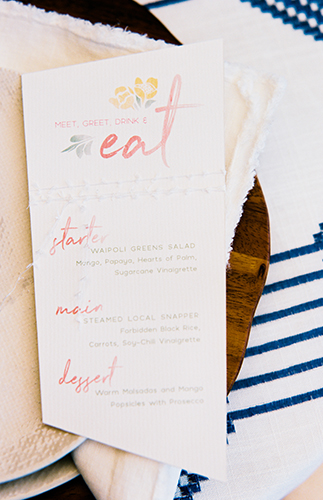 MEET, GREET, DRINK &
eat
starter
WAIPOLI GREENS SALAD
Mango, Papaya, Hearts of Palm,
Sugarcane Vinaigrette
main
STEAMED LOCAL SNAPPER
Forbidden Black Rice,
Carrots, Soy-Chili Vinaigrette
dessert
Warm Malasadas and Mango
Popsicles with Prosecco